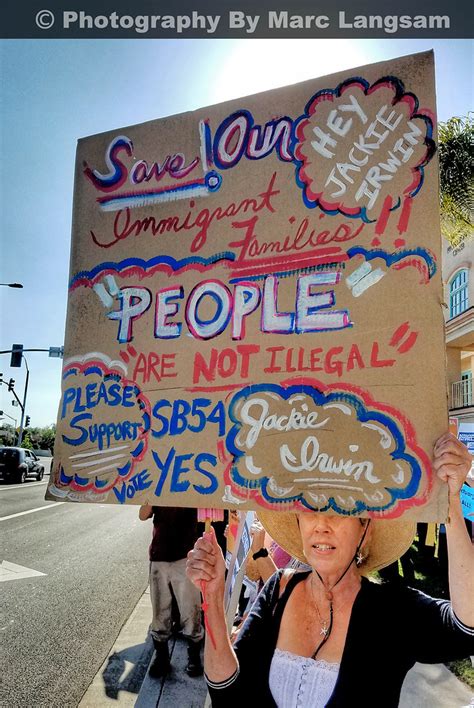 © Photography By Marc Langsam
Save Our
HEY
JACKIE
IRWIN
Immigrant
Families!!
"PEOPLE"
"ARE NOT ILLEGAL"
PLEASE
SUPPORT
SB54
VOTE YES
Jackie
Irwin